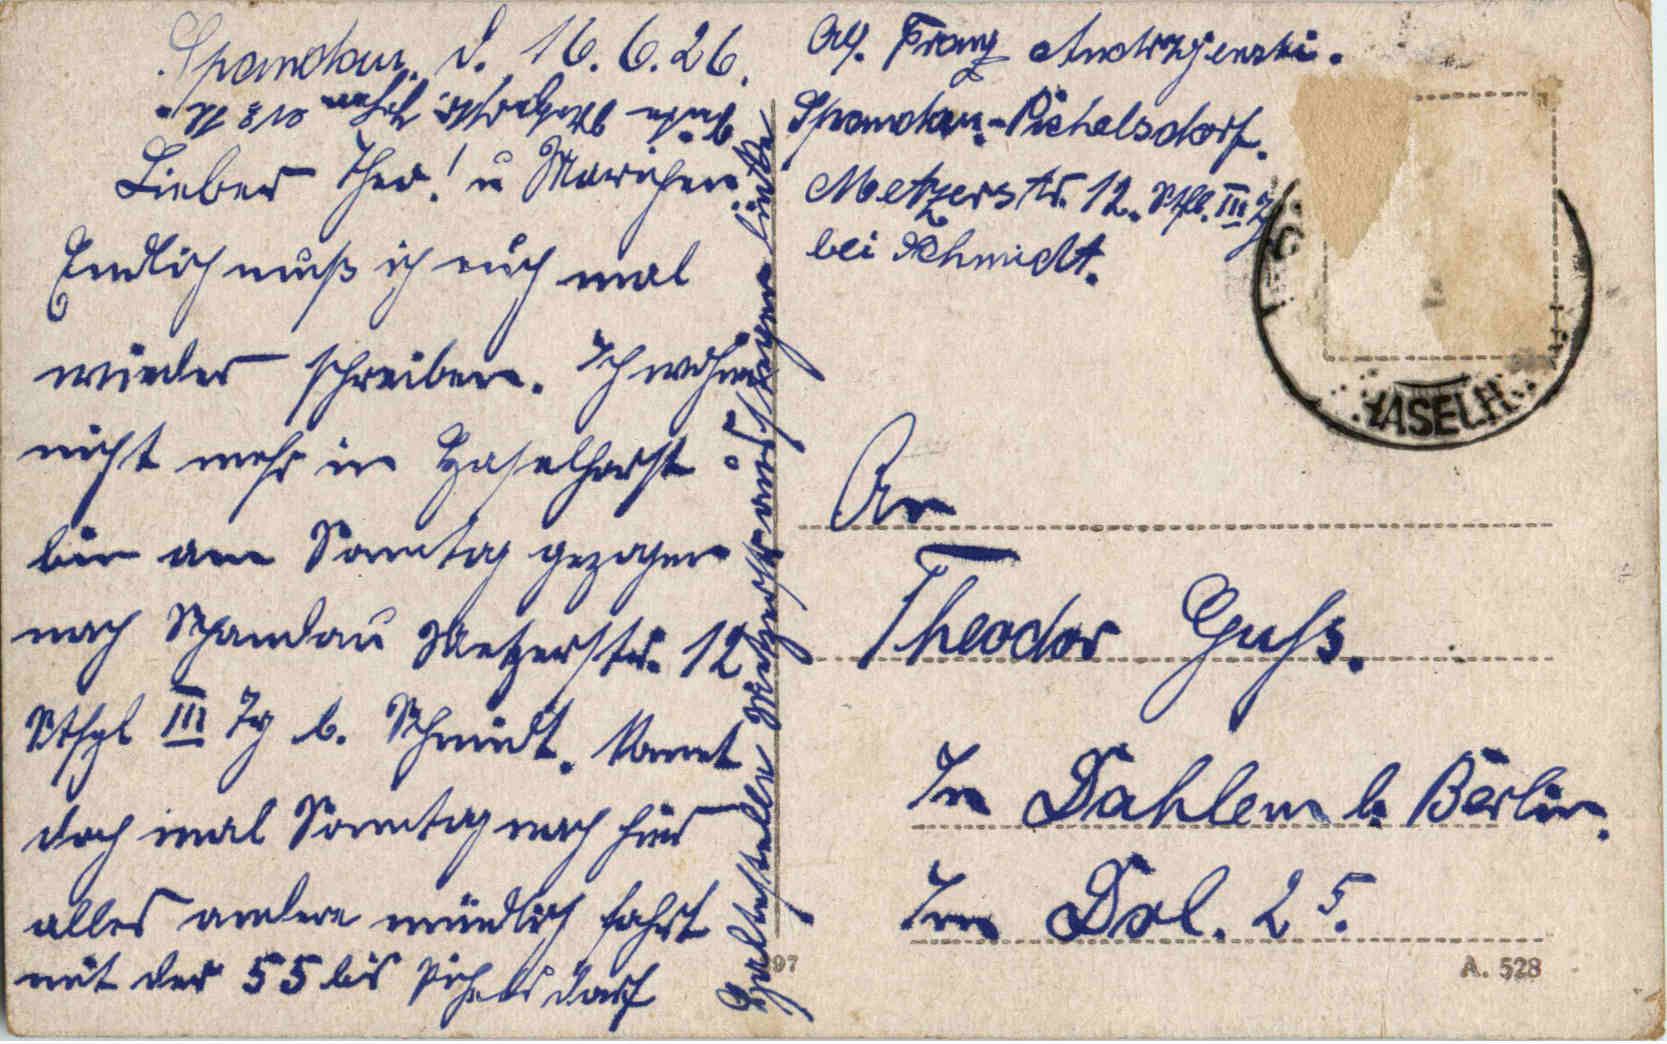 Spandau. d. 16.6.26.
Lieber Theo! u Mariechen.
Endlich muß ich euch mal
wieder schreiben. Ich wohne
nicht mehr in Haselhorst
bin am Sonntag gezogen
nach Spandau Metzerstr. 12
Stfgl III Tg b. Schmidt. Kommt
doch mal Sonntag nach hier
alles andere mündlich fahrt
mit der 55 bis Pichelsdorf
Haltestelle Metzerstr aussteigen links
Abs. Franz
Spandau-Pichelsdorf.
Metzerstr. 12. Stfl. III Tg
bei Schmidt.
HASELH
An
Theodor Guss.
In Dahlem b. Berlin.
Im Dol. 25.
97
A. 528